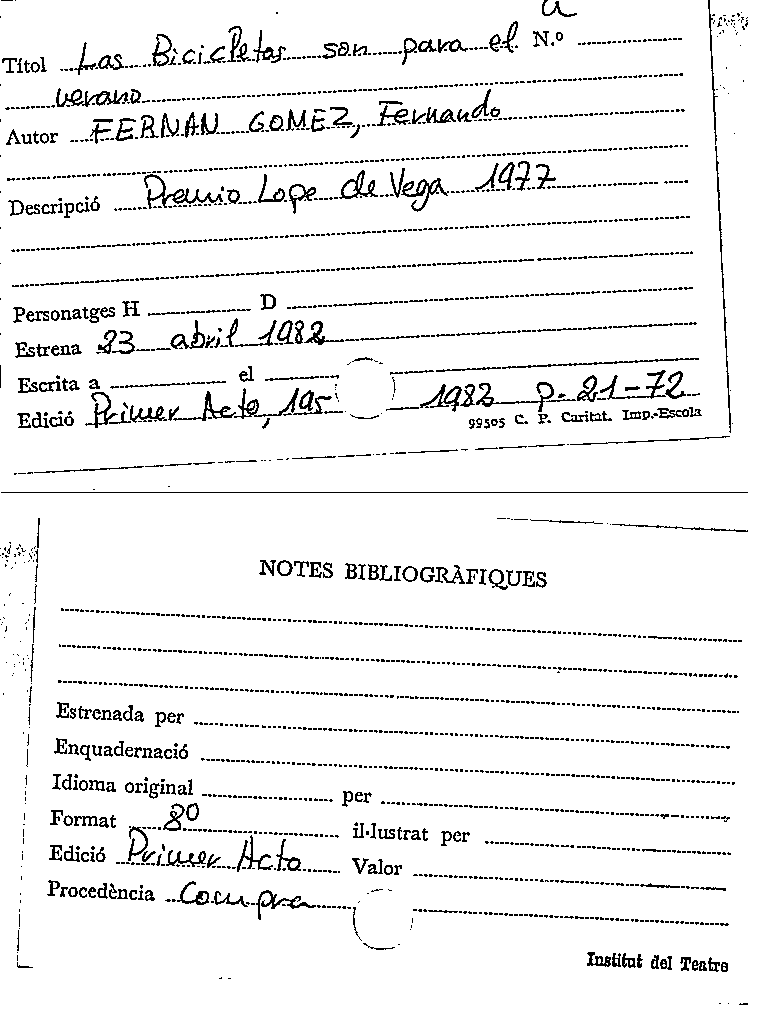 a
Títol Las Bicicletas son para el N.º
verano
Autor FERNAN GOMEZ, Fernando
Descripció Premio Lope de Vega 1977
Personatges H D
Estrena 23 abril 1982
Escrita a el
Edició Primer Acto, 195 1982 p. 21-72
99505 C. P. Caritat. Imp.-Escola
NOTES BIBLIOGRÀFIQUES
Estrenada per
Enquadernació
Idioma original per
Format 8º il·lustrat per
Edició Primer Acto Valor
Procedència Compra
Institut del Teatre